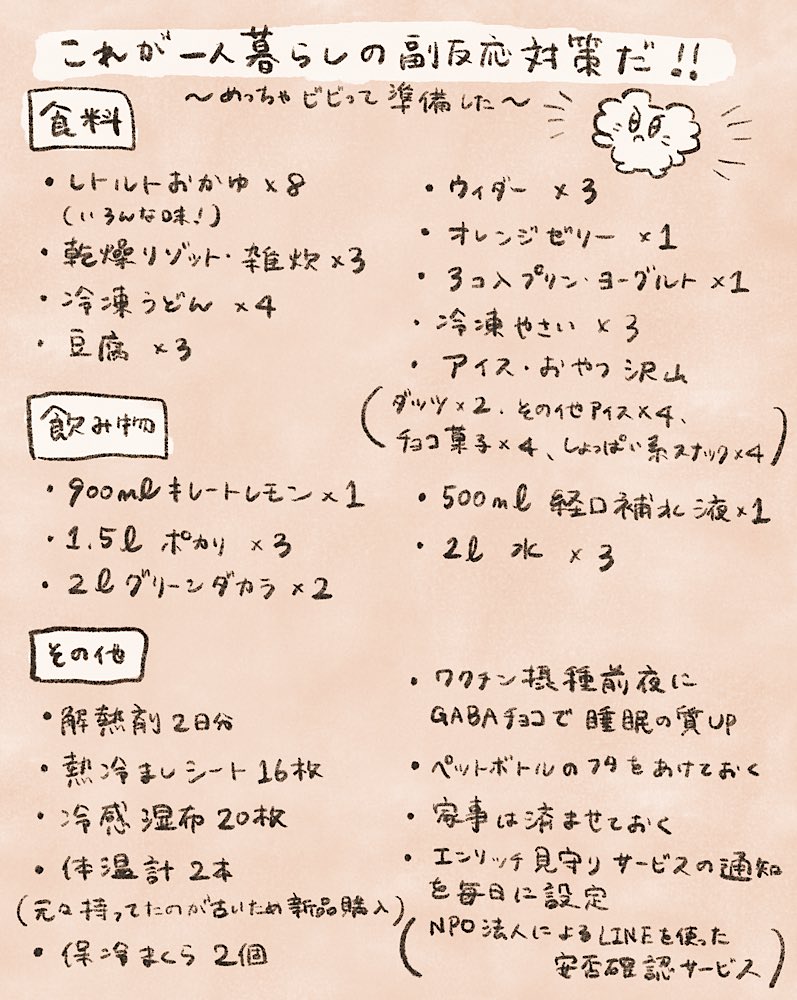 これが一人暮らしの副反応対策だ!!
〜めっちゃビビって準備した〜
食料
・レトルトおかゆ×8
(いろんな味!)
・乾燥リゾット・雑炊×3
・冷凍うどん×4
・豆腐×3
・ウィダー×3
・オレンジゼリー×1
・3コ入プリン・ヨーグルト×1
・冷凍やさい×3
・アイス・おやつ沢山
(ダッツ×2、その他アイス×4、
チョコ菓子×4、しょっぱい系スナック×4)
飲み物
・900mlキレートレモン×1
・1.5lポカリ×3
・2lグリーンダカラ×2
・500ml経口補水液×1
・2l水×3
その他
・解熱剤2日分
・熱冷ましシート16枚
・冷感湿布20枚
・体温計2本
(元々持ってたのが古いため新品購入)
・保冷まくら2個
・ワクチン摂種前夜に
GABAチョコで睡眠の質UP
・ペットボトルのフタをあけておく
・家事は済ませておく
・エンリッチ見守りサービスの通知
を毎日に設定
(NPO法人によるLINEを使った
安否確認サービス)